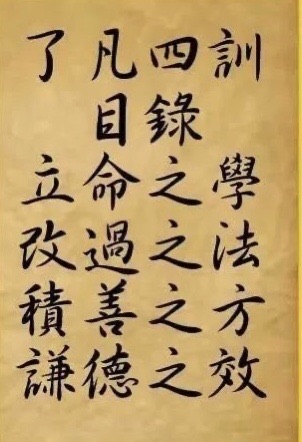 了凡四訓
目錄
立命之學
改過之法
積善之方
謙德之效